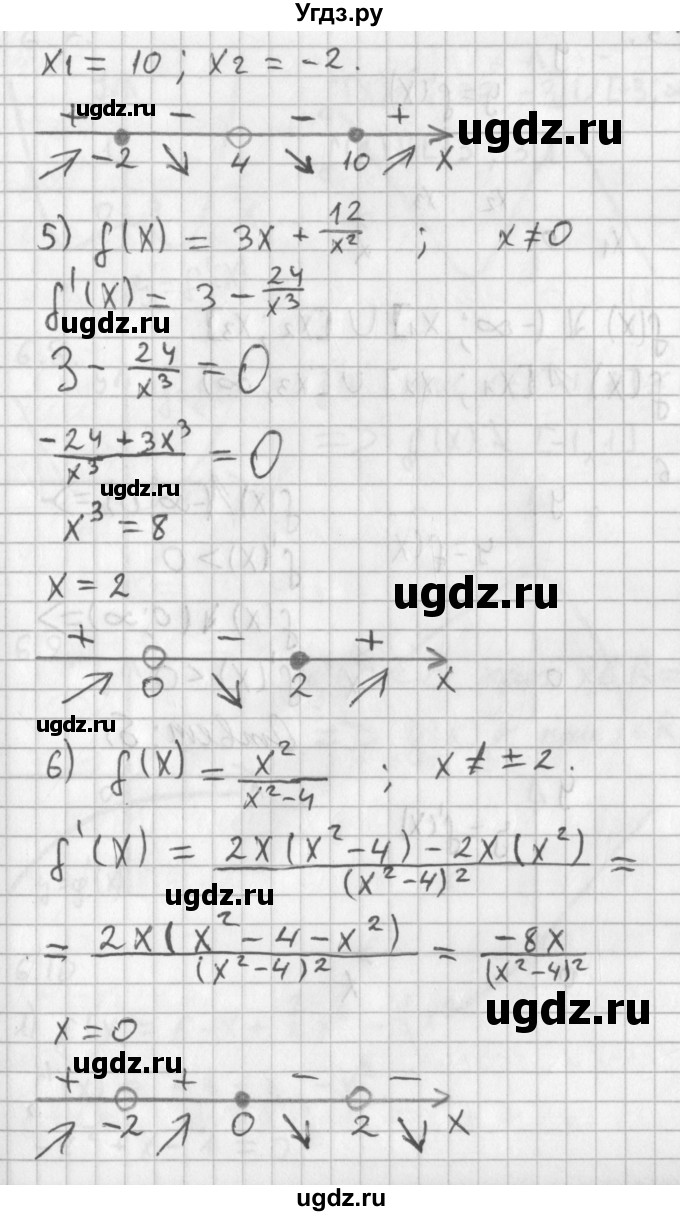 Угдз.ру
x1 = 10 ; x2 = -2.
ugdz.ru
+ - - +
ugdz.ru
-2 4 10 x
5) f(x) = 3x + 12/x² ; x ≠ 0
f'(x) = 3 - 24/x³
ugdz.ru
3 - 24/x³ = 0
(-24 + 3x³)/x³ = 0
ugdz.ru
x³ = 8
x = 2
ugdz.ru
+ - +
0 2 x
ugdz.ru
6) f(x) = x²/(x²-4) ; x ≠ ±2.
f'(x) = (2x(x²-4) - 2x(x²))/(x²-4)² =
ugdz.ru
= 2x(x²-4-x²)/(x²-4)² = -8x/(x²-4)²
ugdz.ru
x = 0
ugdz.ru
+ + - -
-2 0 2 x
ugdz.ru